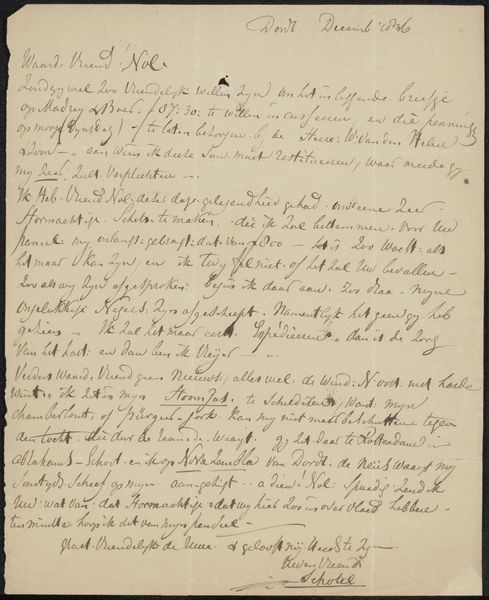 Dordt. Decemb 1836
Waarde Vriend! Nol.
Zoudt gij wel zoo Vriendelijk willen zijn om het in liggende briefje
op Madry & Boer f 87:30: te willen incasseeren, en die penningen
op morgen of te laten bezorgen bij de Heeren W. van den
& Zoon aan wien ik deze Som moet restitueeren, waar mede gij
mij Zeer Zult Verplichten
Ik Heb Vriend Nol, deze dage gelegendheid gehad om eene Zeer
Stormachtige Schets te maken, die ik Zal bestemmen voor Uw
paneel mij onlangs gebragt: dat van f 800 Zoo Woest als
het maar Kan Zijn, en ik twijfel niet of het Zal Uw bevallen
Zoo als wij Zijn afgesproken begin ik daar aan. Zoo dra mijne
ongelukkige Negers Zijn afgescheept. Namentlijk het geen gij heb
gezien Ik Zal het maar eerst Expedieeren, dan is de Zorg
Van het hart en dan ben ik Vrijer
Verders Waarde Vriend geen Nieuws, alles wel de Wind: N: oost: met harde
Wind ik Zit in mijn te Schilderen, Want mijn
of Kan mij niet meer beschutten tegen
den tocht die door de raamen Waayt. gij Zit daar te Rotterdam in
Abrahams Schoot en ik op Nova Zembla van Dordt: de Neus waayt mij
Scheef op mijn aangezigt adieu! Nol Spoedig Zend ik
Uw: wat van dat Stormachtige: dat wij hier Zoo in overvloed hebben
ten minste hoop ik dit van mijn penseel
groet Vriendelijk de Uwe & geloof mij Steeds te Zijn
Uwen Vriend
Schotel